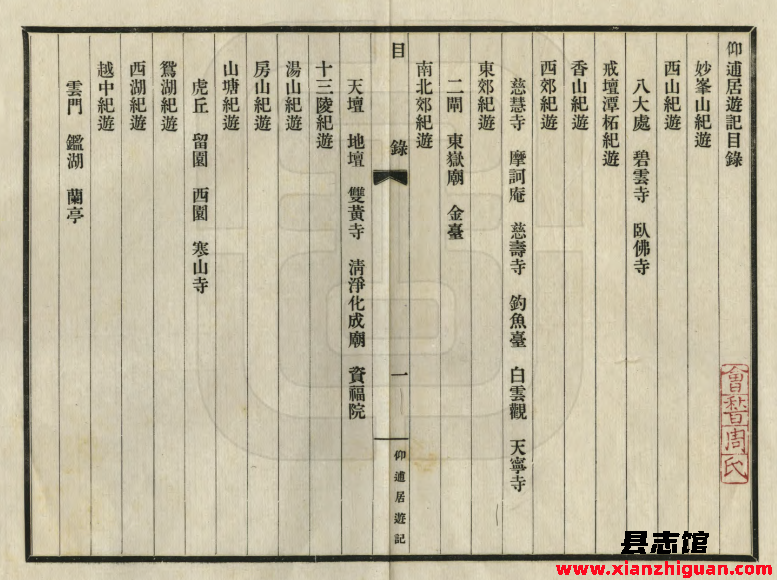 仰逋居遊記目錄
妙峯山紀遊
西山紀遊
八大處 碧雲寺 臥佛寺
戒壇潭柘紀遊
香山紀遊
西郊紀遊
慈慧寺 摩訶庵 慈壽寺 釣魚臺 白雲觀 天寧寺
東郊紀遊
二閘 東嶽廟 金臺
南北郊紀遊
目錄 一 仰逋居遊記
天壇 地壇 雙黃寺 清淨化成廟 資福院
十三陵紀遊
湯山紀遊
房山紀遊
山塘紀遊
虎丘 留園 西園 寒山寺
鴛湖紀遊
西湖紀遊
越中紀遊
雲門 鑑湖 蘭亭
會稽周氏
县志馆
www.xianzhiguan.com